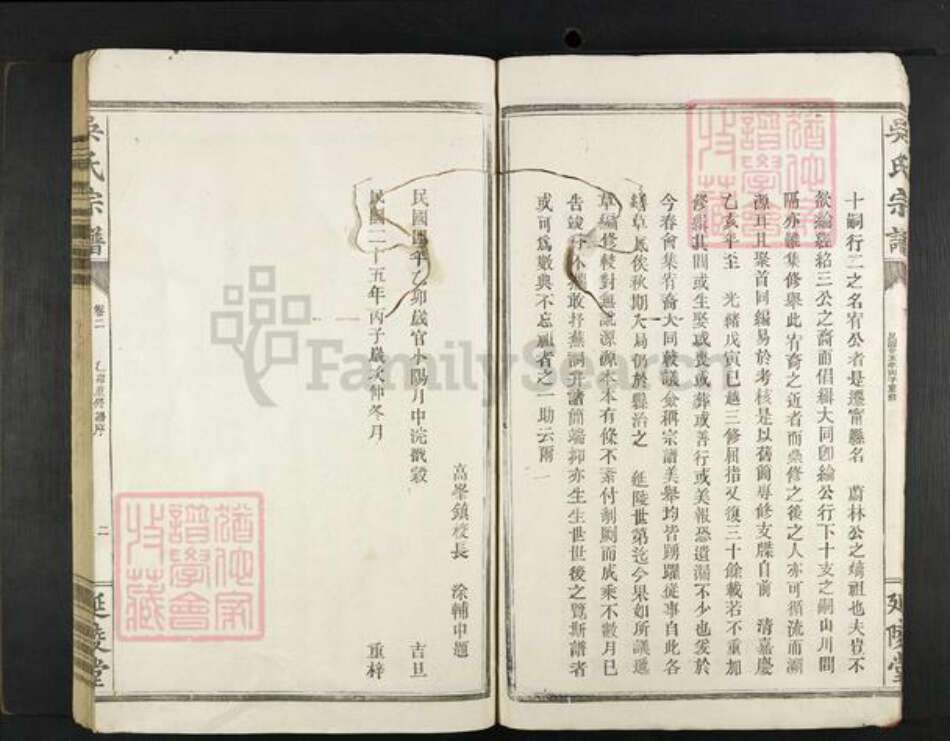 吳氏宗譜
民國廿五年丙子重修
延陵堂
十嗣行二之名宥公者是遷甯縣名 蔚林公之嫡祖也夫豈不
欲綸經絡三公之裔而倡緝大同卽綸公行下十支之嗣山川間
隔亦難集修舉此宥裔之近者而彔修之後之人亦可循流而溯
源耳且聚首同編易於考核是以舊簡專修支牒自前 清嘉慶
乙亥年至 光緒戊寅已越三修屈指又復三十餘載若不重加
修緝其間或生娶或喪或葬或善行或美報恐遺漏不少也爰於
今春會集宥裔大同敦議僉稱宗譜美舉均皆踴躍從事自此各
草 俟秋期大局仍於縣治之 延陵世第迄今果如所議遞
草編修較對無訛源源本本有條不紊付剞劂而成乘不數月已
告竣 不 敢抒蕪詞弁諸簡端抑亦生生世世後之覽斯譜者
或可爲數典不忘祖者之一助云爾
高峯鎮校長 涂輔中題
民國四年乙卯歲官小陽月中浣戩穀 吉旦
民國二十五年丙子歲次仲冬月 重梓
吳氏宗譜
卷二
乙卯重修譜序
二
延陵堂
猶他家
譜學會
收藏
猶他家
譜學會
收藏
FamilySearch